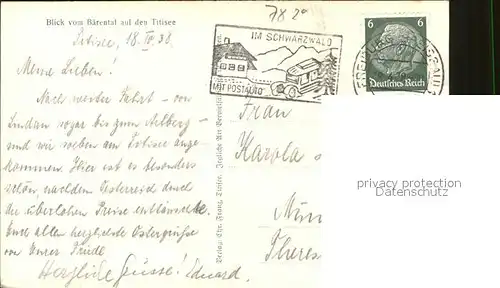 Blick vom Bärental auf den Titisee
78 20
Titisee, 18. IV. 38.
IM SCHWARZWALD
MIT POSTAUTO
6 6
Deutsches Reich
Meine Lieben!
Nach werter Fahrt – von
Lindau sogar bis zum Arlberg –
sind wir am Titisee ange-
kommen. Hier ist es besonders
schön, nachdem Österreich durch
die überlohen Preise enttäuschte.
Euch allen herzlichste Ostergrüße
von Eurer Friedl
Herzliche Grüsse! Eduard.
Verlag: Chr. Franz, Titisee.
Frau
Karola
Mün
Theres
privacy protection
www.ansichtskarten.com